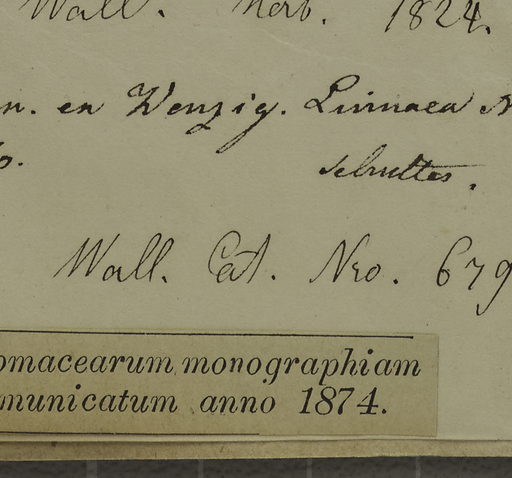 Wall. Herb. 1824.
n. en Wenzig. Linnaea
Schultes.
Wall. Cat. Nro. 679
omacearum monographiam
municatum anno 1874.